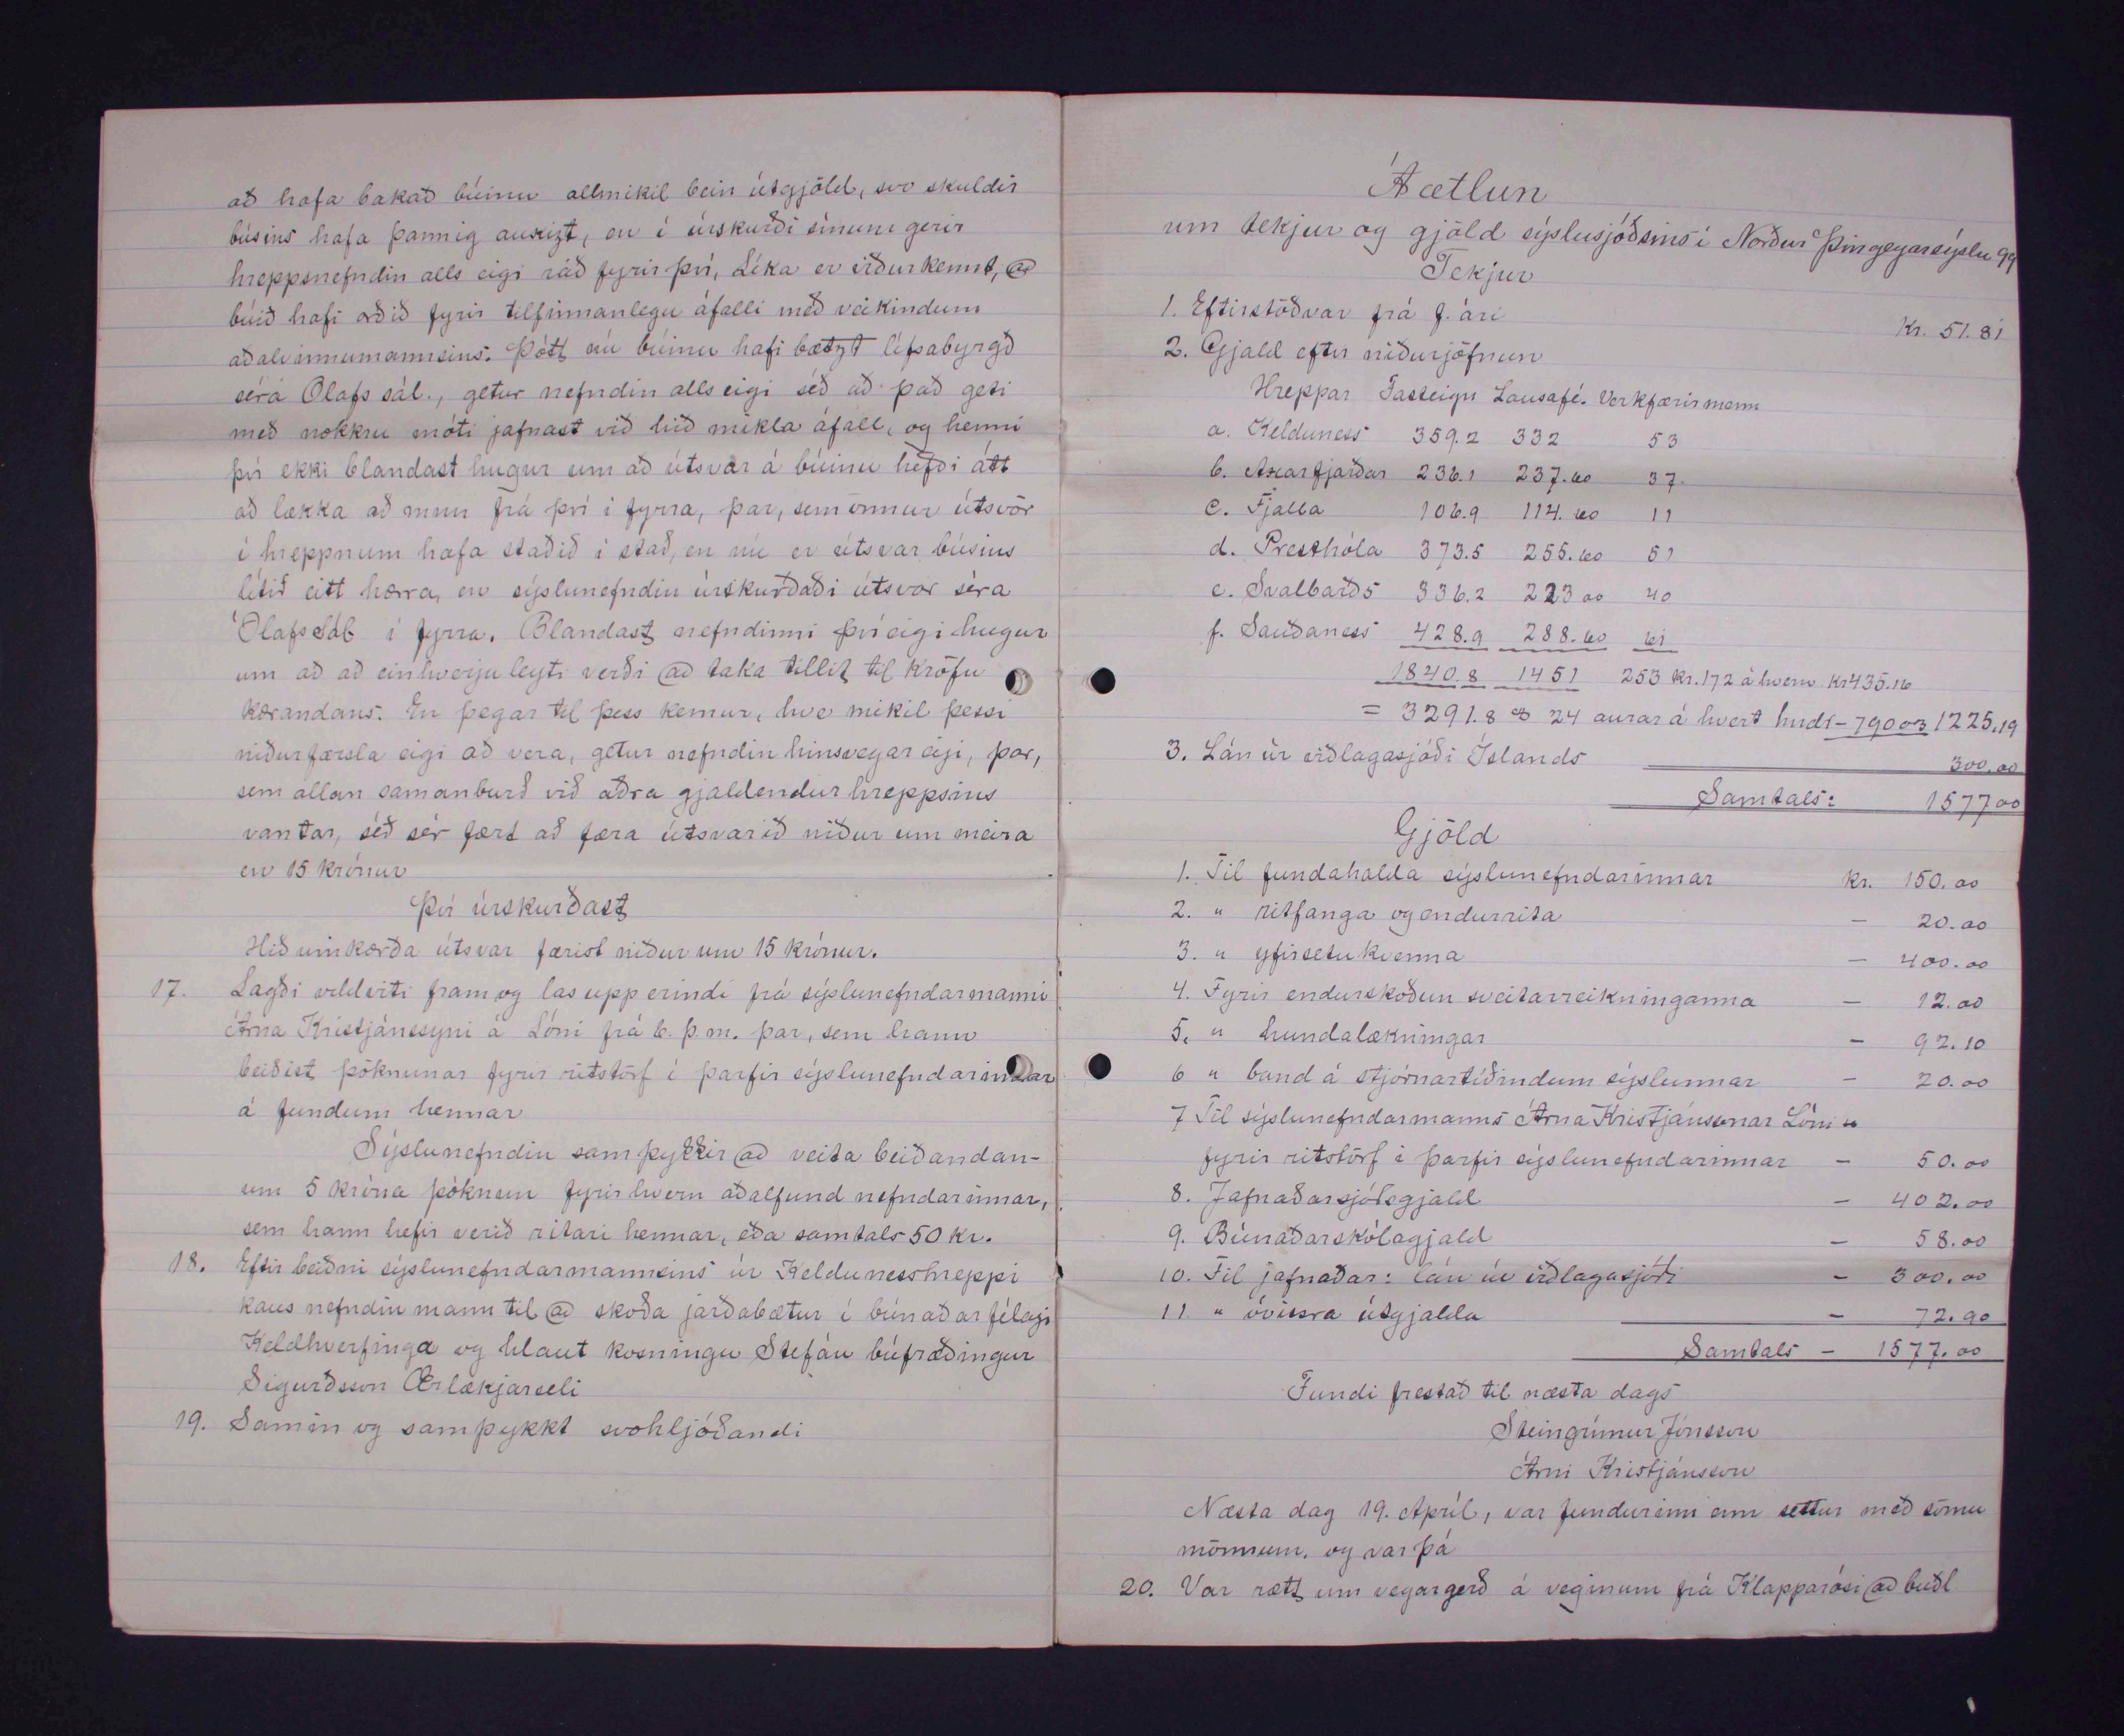 að hafa bakað búinu allmikil bein útgjöld, svo skuldir
búsins hafa þannig aukizt, en í úrskurði sínum gerir
hreppsnefndin alls eigi ráð fyrir því, Líka er viðurkennt, @
búið hafi orðið fyrir tilfinnanlegu áfalli með veikindum
aðalvinnumannsins. Þótt nú búinu hafi bætzt lífsabyrgð
séra Olafs sál., getur nefndin alls eigi séð að það geti
með nokkru móti jafnast við hið mikla áfall, og henni
því ekki blandast hugur um að útsvar á búinu hefði átt
að lækka að mun frá því í fyrra, þar, sem önnur útsvör
í hreppnum hafa staðið í stað, en nú er útsvar búsins
lítið eitt hærra, en sýslunefndin úrskurðaði útsvar séra
Ólafs sál í fyrra. Blandast nefndinni því eigi hugur
um að að einhverju leyti verði @ taka tillit til kröfu
kærandans. En þegar til þess kemur, hve mikil þessi
niðurfærsla eigi að vera, getur nefndin hinsvegar eigi, þar,
sem allan samanburð við aðra gjaldendur hreppsins
vantar, séð sér fært að færa útsvarið niður um meira
en 15 krónur
Því úrskurðast
Hið umkærða útsvar færist niður um 15 krónur.
17. Lagði oddviti fram og las upp erindi frá sýslunefndarmanni
Árna Kristjánssyni á Lóni frá 6. þ.m. þar, sem hann
beiðist þóknunar fyrir ritstörf í þarfir sýslunefndarinnar
á fundum hennar
Sýslunefndin samþykkir @ veita beiðandan-
um 5 króna þóknun fyrir hvern aðalfund nefndarinnar,
sem hann hefir verið ritari hennar, eða samtals 50 kr.
18. Eftir beiðni sýslunefndarmannsins úr Keldunesshreppi
kaus nefndin mann til @ skoða jarðabætur í búnaðarfélagi
Keldhverfinga og hlaut kosningu Stefán búfræðingur
Sigurðsson Ærlækjarseli
19. Samin og samþykkt svohljóðandi
Áætlun
um tekjur og gjöld sýslusjóðsins í Norður Þingeyarsýslu 99
Tekjur
1. Eftirstöðvar frá f. ári Kr. 51.81
2. Gjald eftir niðurjöfnun
Hreppar Fasteign Lausafé. Verkfærir menn
a. Kelduness 359.2 332 53
b. Axarfjarðar 236.1 237.60 37.
c. Fjalla 106.9 114.60 11
d. Presthóla 373.5 255.60 51
e. Svalbarðs 336.2 223 00 40
f. Sauðaness 428.9 288.60 61
1840.8 1451 253 kr. 172 á hvern kr 435.16
= 3291.8 @ 24 aurar á hvert hndr - 790 03 1225.19
3. Lán úr viðlagasjóði Íslands 300.00
Samtals: 1577 00
Gjöld
1. Til fundahalda sýslunefndarinnar kr. 150.00
2. " ritfanga og endurrita - 20.00
3. " yfirsetukvenna - 400.00
4. Fyrir endurskoðun sveitarreikninganna - 12.00
5. " hundalækningar - 92.10
6 " band á stjórnartíðindum sýslunnar - 20.00
7 Til sýslunefndarmanns Árna Kristjánssonar Lóni
fyrir ritstörf í þarfir sýslunefndarinnar - 50.00
8. Jafnaðarsjóðsgjald - 402.00
9. Búnaðarskólagjald - 58.00
10. Til jafnaðar: lán úr viðlagasjóði - 300.00
11 " óvissra útgjalda - 72.90
Samtals - 1577.00
Fundi frestað til næsta dags
Steingrímur Jónsson
Árni Kristjánsson
Næsta dag 19. Apríl, var fundurinn enn settur með sömu
mönnum, og var þá
20. Var rætt um vegargerð á veginum frá Klapparósi @